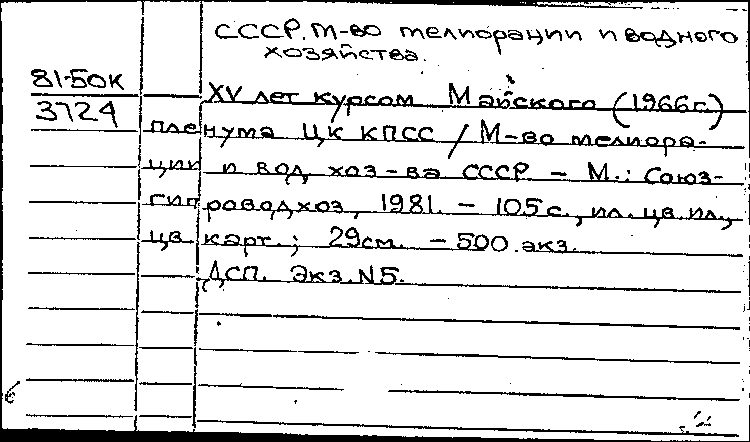 СССР. М-во мелиорации и водного
хозяйства.
81-50К
3724
XV лет курсом Майского (1966г.)
пленума ЦК КПСС / М-во мелиора-
ции и вод. хоз-ва СССР. - М.: Союз-
гипроводхоз, 1981. - 105 с., ил. цв. ил.,
цв. карт.; 29см. - 500 экз.
ДСП. Экз. N5.